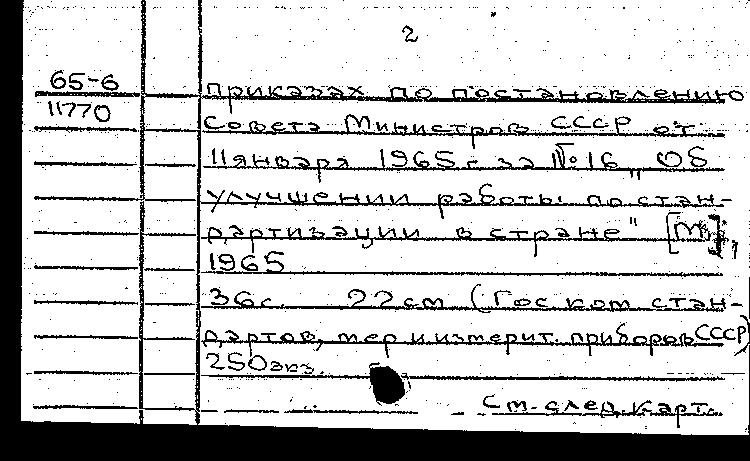 2
65-6
11770
приказах по постановлению
Совета Министров СССР от
11 января 1965 г. за № 16 „Об
улучшении работы по стан-
дартизации в стране" [М],
1965
36 с. 22 см (Гос ком стан-
дартов, мер и измерит. приборов СССР)
250 экз.
См. след. карт.